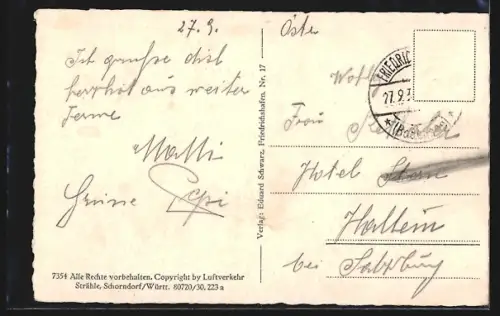 27.9.
Ich grüsse dich
herzlich aus weiter
Ferne
Malli
Pepi
7354 Alle Rechte vorbehalten. Copyright by Luftverkehr
Strähle, Schorndorf/Württ. 80720/30, 223 a
Verlag: Eduard Schwarz, Friedrichshafen. Nr. 17
FRIEDRIC
27.9.3
(Bodensee)
Frau
Hotel
Hallein
bei Salzburg